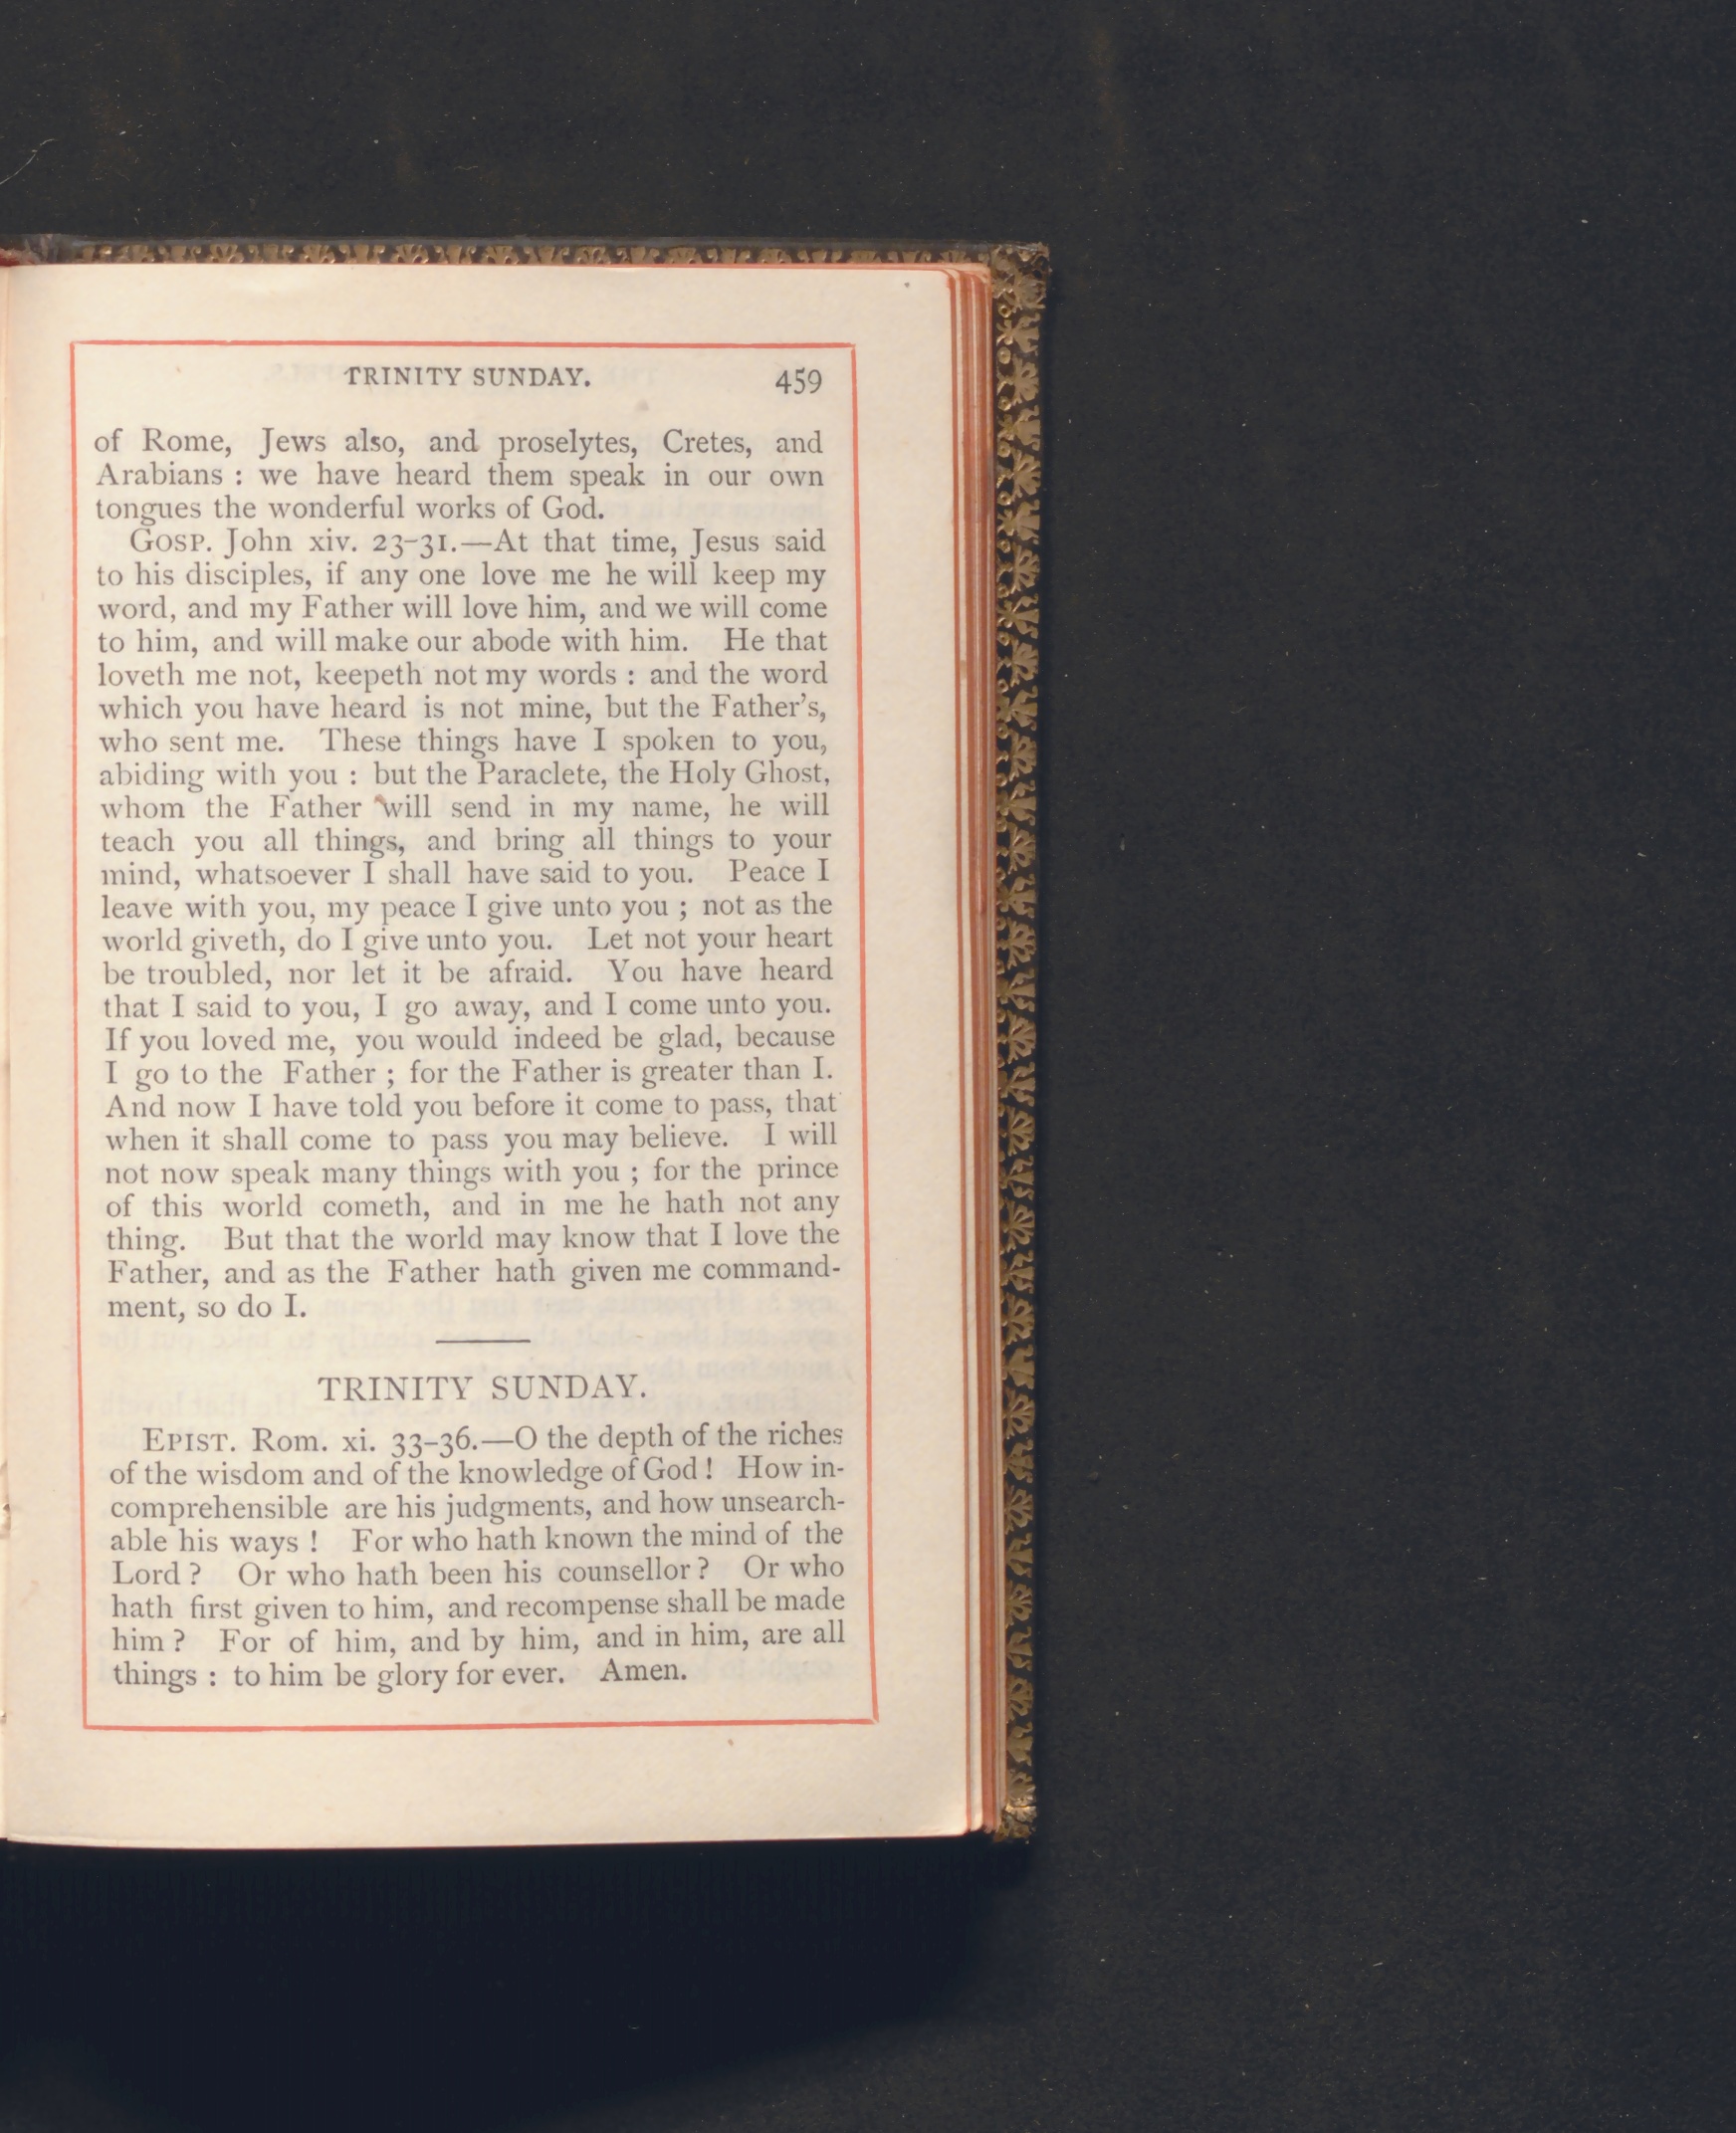 TRINITY SUNDAY. 459
of Rome, Jews also, and proselytes, Cretes, and
Arabians : we have heard them speak in our own
tongues the wonderful works of God.
GOSP. John xiv. 23–31.—At that time, Jesus said
to his disciples, if any one love me he will keep my
word, and my Father will love him, and we will come
to him, and will make our abode with him. He that
loveth me not, keepeth not my words : and the word
which you have heard is not mine, but the Father's,
who sent me. These things have I spoken to you,
abiding with you : but the Paraclete, the Holy Ghost,
whom the Father will send in my name, he will
teach you all things, and bring all things to your
mind, whatsoever I shall have said to you. Peace I
leave with you, my peace I give unto you ; not as the
world giveth, do I give unto you. Let not your heart
be troubled, nor let it be afraid. You have heard
that I said to you, I go away, and I come unto you.
If you loved me, you would indeed be glad, because
I go to the Father ; for the Father is greater than I.
And now I have told you before it come to pass, that
when it shall come to pass you may believe. I will
not now speak many things with you ; for the prince
of this world cometh, and in me he hath not any
thing. But that the world may know that I love the
Father, and as the Father hath given me command-
ment, so do I.
TRINITY SUNDAY.
EPIST. Rom. xi. 33–36.—O the depth of the riches
of the wisdom and of the knowledge of God ! How in-
comprehensible are his judgments, and how unsearch-
able his ways ! For who hath known the mind of the
Lord ? Or who hath been his counsellor ? Or who
hath first given to him, and recompense shall be made
him ? For of him, and by him, and in him, are all
things : to him be glory for ever. Amen.